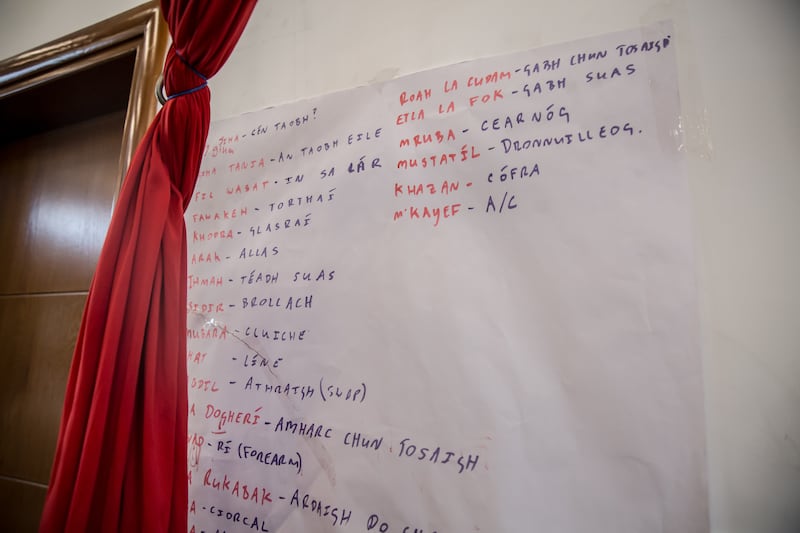 JIHA - CÉN TAOBH?
JIHA TANIA - AN TAOBH EILE
FIL WASAT - IN SA LÁR
FAWAKEH - TORTHAÍ
KHODRA - GLASRAÍ
ARAK - ALLAS
IHMAH - TÉADH SUAS
SIDIR - BROLLACH
MUBARA - CLUICHE
HAT - LÍNE
ODIL - ATHRAIGH (SWAP)
A DOGHERÍ - AMHARC CHUN TOSAIGH
- RÍ (FOREARM)
A RUKABAK - ARDAIGH DO
A - CIORCAL
ROAH LA CUDAM - GABH CHUN TOSAIGH
ETLA LA FOK - GABH SUAS
MRUBA - CEARNÓG
MUSTATÍL - DRONNUILLEOG.
KHAZAN - CÓFRA
M'KAYEF - A/C